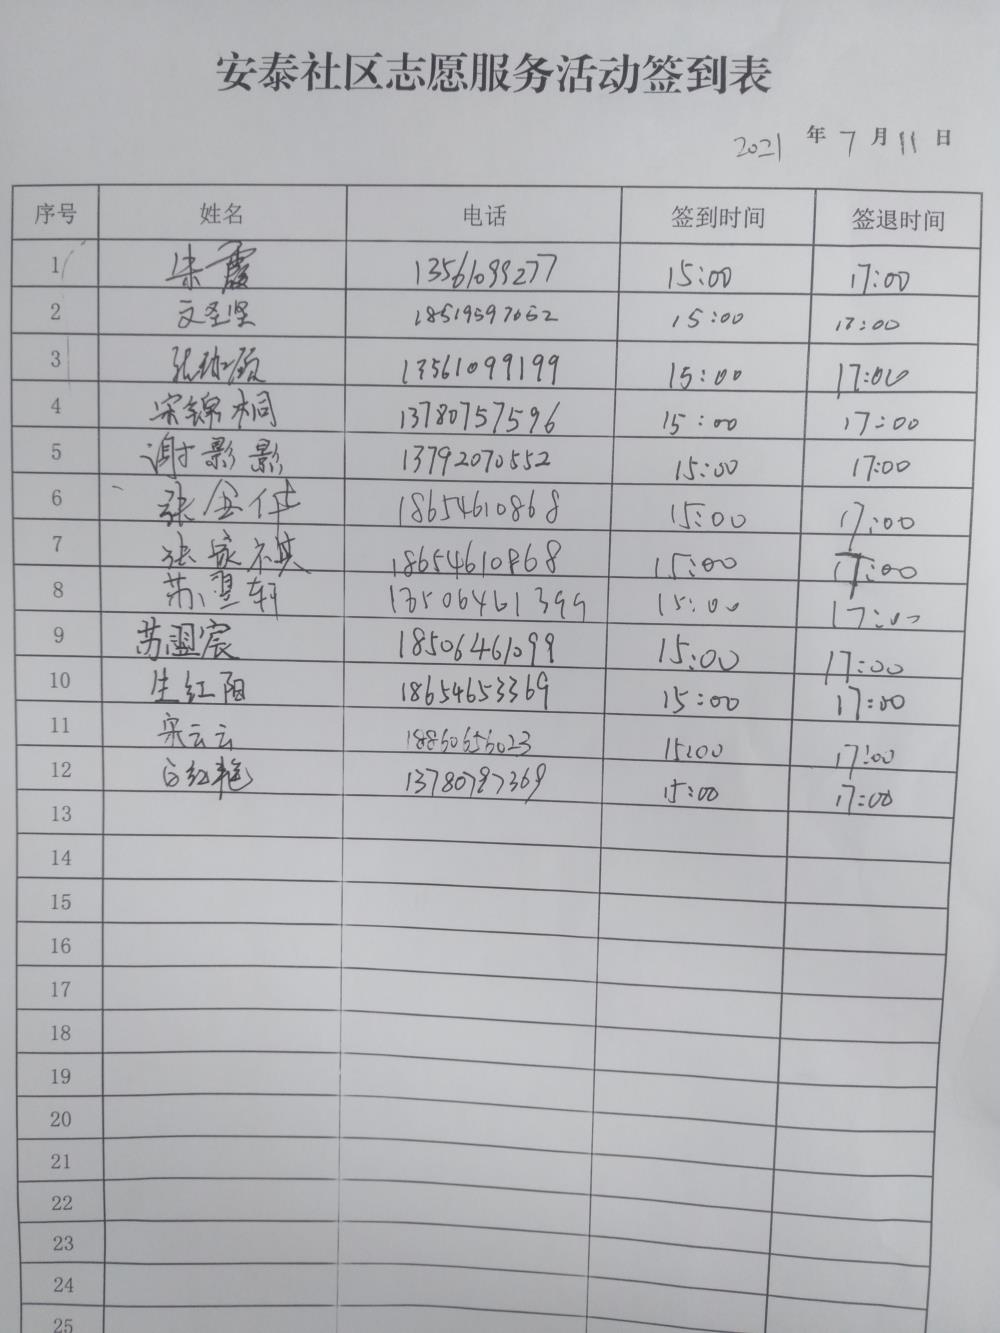 安泰社区志愿服务活动签到表
2021 年 7 月 11 日
序号 姓名 电话 签到时间 签退时间
1 朱霞 13561099277 15:00 17:00
2 文圣坚 18519597052 15:00 17:00
3 张 13561099199 15:00 17:00
4 宋锦桐 13780757596 15:00 17:00
5 谢影影 13792070552 15:00 17:00
6 张金伟 18654610868 15:00 17:00
7 张家祺 18654610868 15:00 17:00
8 苏翌轩 13506461399 15:00 17:00
9 苏盟宸 18506461099 15:00 17:00
10 生红阳 18654653369 15:00 17:00
11 宋云云 18860656023 15:00 17:00
12 白红艳 13780797369 15:00 17:00
13
14
15
16
17
18
19
20
21
22
23
24
25